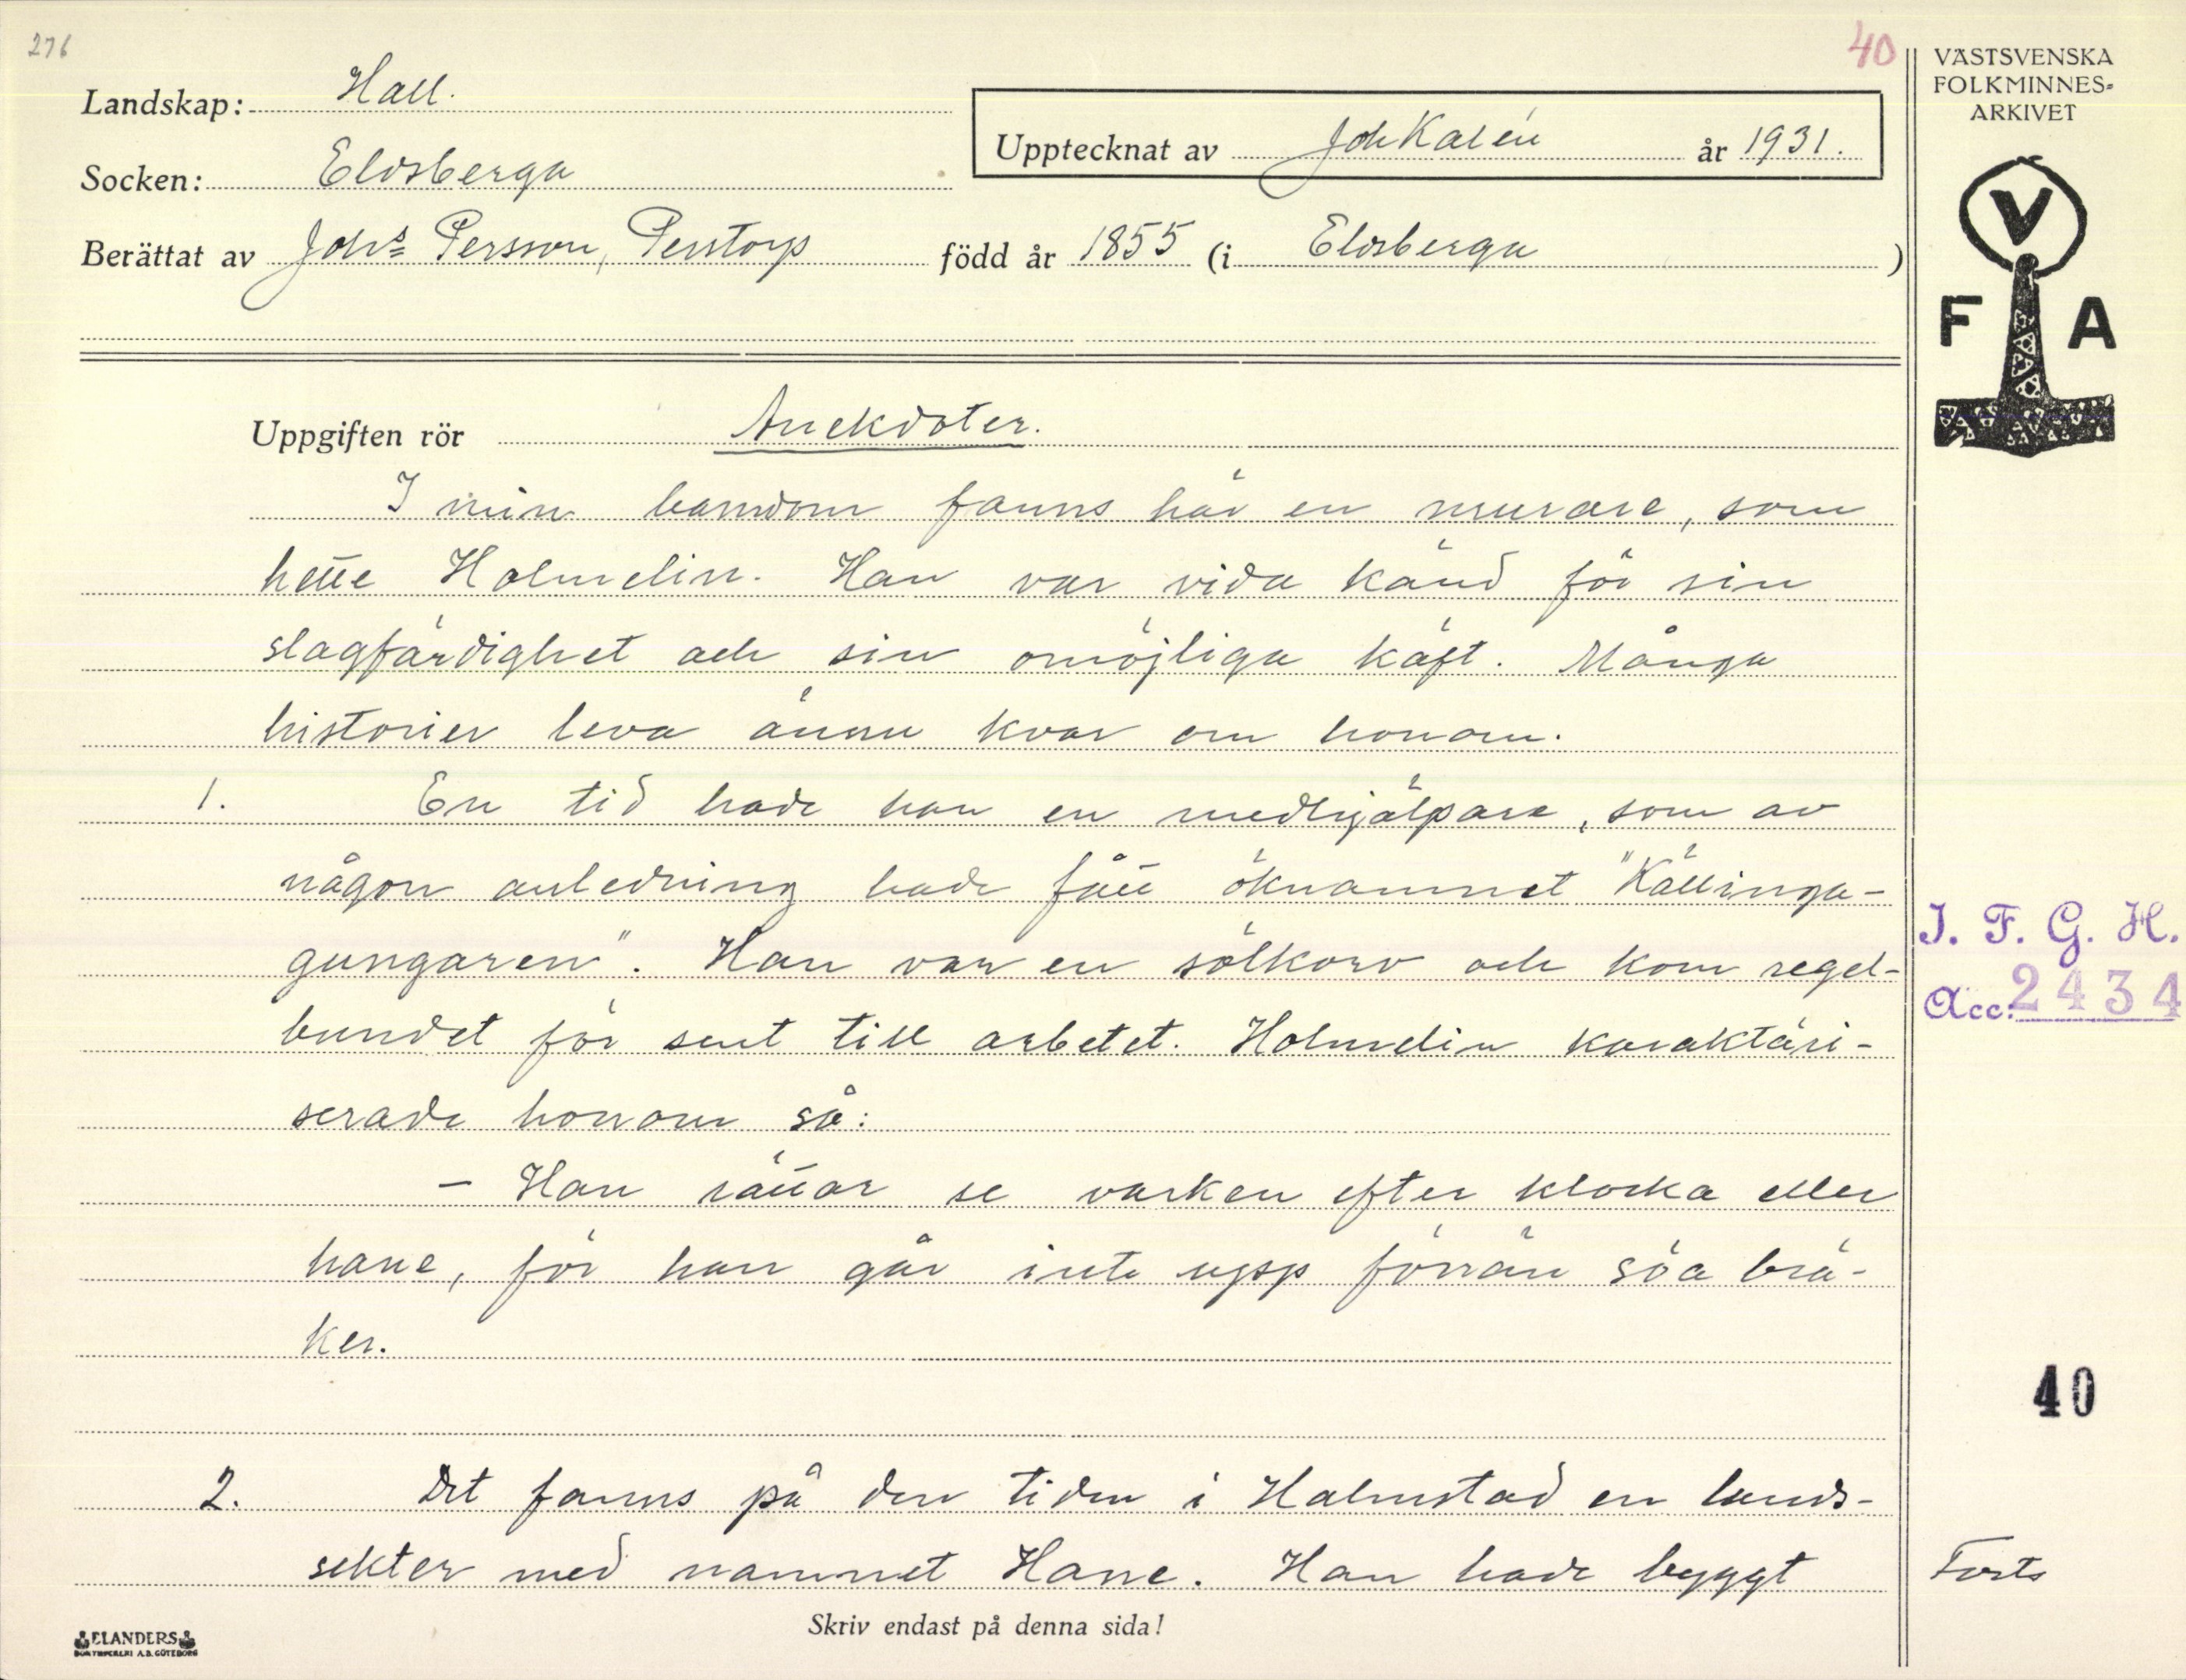 276
40
Landskap: Hall.
Socken: Eldsberga
Upptecknat av Joh Kalén år 1931.
Berättat av Johs Persson, Perstorp född år 1855 (i Eldsberga )
VÄSTSVENSKA
FOLKMINNES-
ARKIVET
V
F A
Uppgiften rör Anekdoter.
I min barndom fanns här en murare, som
hette Holmelin. Han var vida känd för sin
slagfärdighet och sin omöjliga käft. Många
historier leva ännu kvar om honom.
1. En tid hade han en medhjälpare, som av
någon anledning hade fått öknamnet "Källinga-
gungaren". Han var en sölkorv och kom regel-
bundet för sent till arbetet. Holmelin karaktäri-
serade honom så:
- Han rättar se varken efter klocka eller
hane, för han går inte upp förrän söa brä-
ker.
2. Det fanns på den tiden i Halmstad en lands-
sekter med namnet Hane. Han hade byggt
I. F. G. H.
Acc. 2434
40
Forts
Skriv endast på denna sida!
ELANDERS
BOKTRYCKERI A.B. GÖTEBORG